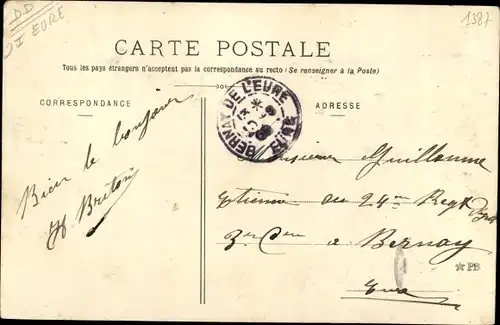 DD
EURE
1387
CARTE POSTALE
Tous les pays étrangers n'acceptent pas la correspondance au recto (Se renseigner à la Poste)
CORRESPONDANCE
ADRESSE
BERNAY DE L'EURE
EURE
Bien le bonjour
Monsieur Guillaume
Etienne au 24me Regt
3e Cie à Bernay
Eure
PB